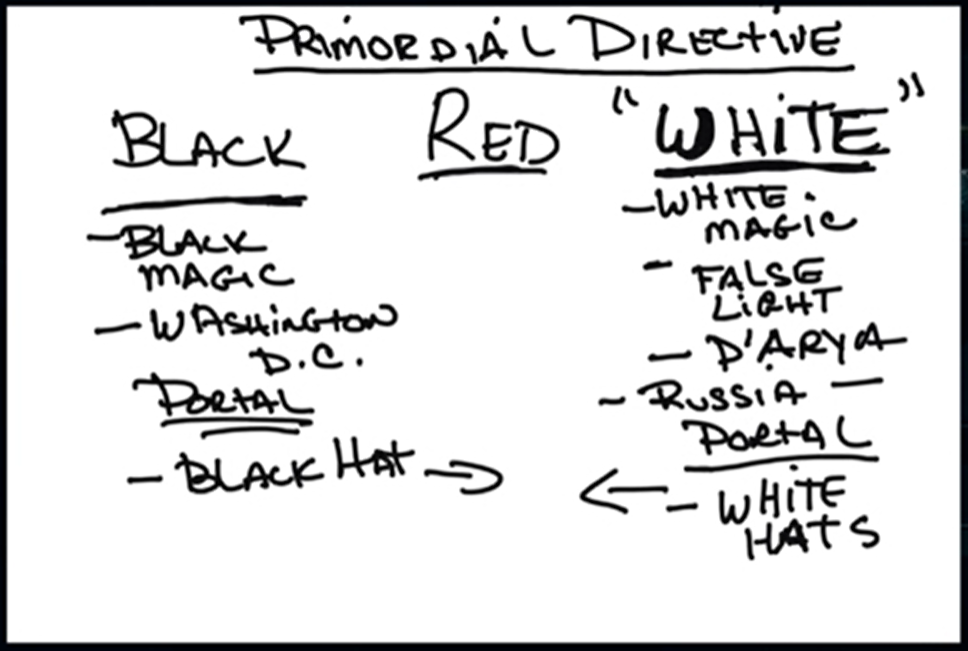 PRIMORDIAL DIRECTIVE
BLACK
- BLACK
MAGIC
- WASHINGTON
D.C.
PORTAL
- BLACK HAT →
RED
"WHITE"
- WHITE
MAGIC
- FALSE
LIGHT
- D'ARYA
- RUSSIA —
PORTAL
← - WHITE
HATS